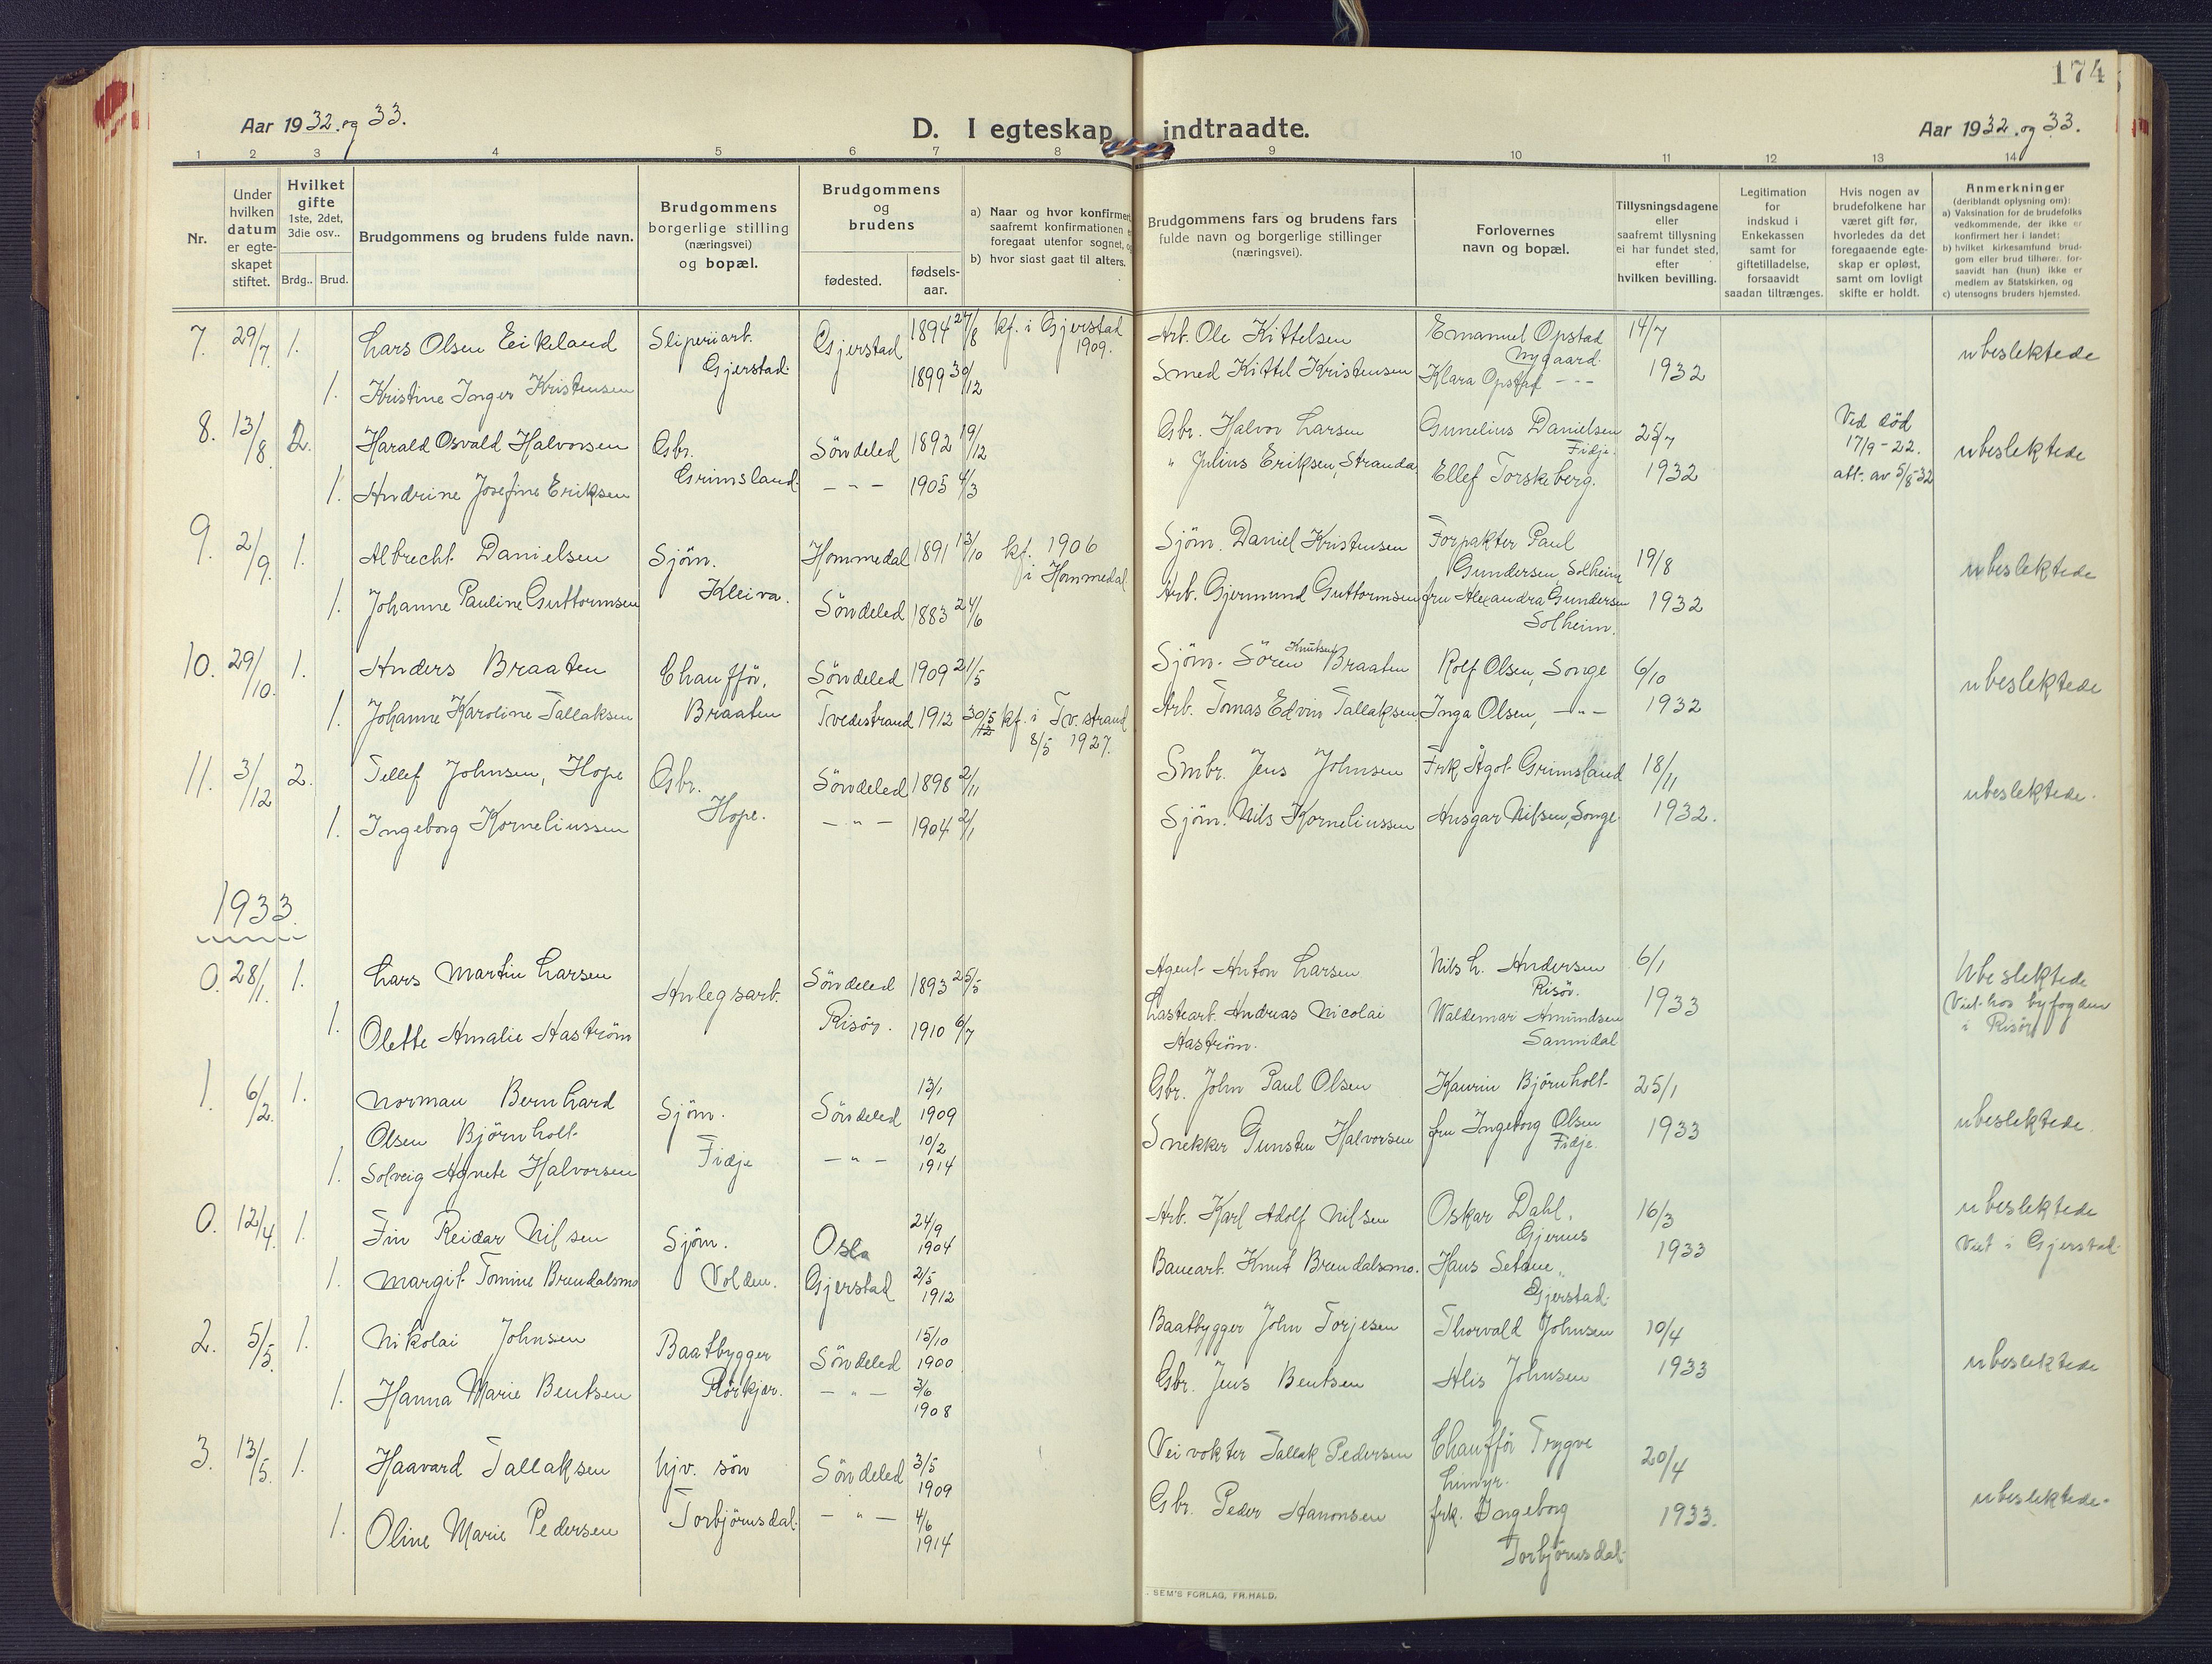 174
Aar 1932. og 33.
D. I egteskap indtraadte.
Aar 1932. og 33.
1 2 3 4 5 6 7 8 9 10 11 12 13 14
Nr.
Under hvilken datum er egteskapet stiftet.
Hvilket gifte 1ste, 2det, 3die osv..
Brdg.. Brud.
Brudgommens og brudens fulde navn.
Brudgommens borgerlige stilling (næringsvei) og bopæl.
Brudgommens og brudens
fødested. fødselsaar.
a) Naar og hvor konfirmert
saafremt konfirmationen
foregaat utenfor sognet,
b) hvor sidst gaat til alters.
Brudgommens fars og brudens fars
fulde navn og borgerlige stillinger
(næringsvei).
Forlovernes
navn og bopæl.
Tillysningsdagene
eller
saafremt tillysning
ei har fundet sted,
efter
hvilken bevilling.
Legitimation
for
indskud i
Enkekassen
samt for
giftetilladelse,
forsaavidt
saadan tiltrænges.
Hvis nogen av
brudefolkene har
været gift før,
hvorledes da det
foregaaende egteskap er opløst,
samt om lovligt
skifte er holdt.
Anmerkninger
(deriblandt oplysning om):
a) Vaksination for de brudefolks
vedkommende, der ikke er
konfirmert her i landet;
b) hvilket kirkesamfund brudgom eller brud tilhører, forsaavidt han (hun) ikke er
medlem av Statskirken, og
c) utensogns bruders hjemsted.
7. 29/7 1. Lars Olsen Eikeland Sliperiarb. Gjerstad. Gjerstad 1894 27/8 kf. i Gjerstad 1909. Arb. Ole Kittelsen Emanuel Opstad Nygaard. 14/7 1932 ubeslektede
1. Kristine Inger Kristensen 1899 30/12 Smed Kittil Kristensen Klara Opstad - - -
8. 13/8 2. Harald Osvald Halvorsen Gbr. Grimsland. Söndeled 1892 19/12 Gbr. Halvor Larsen Gunelius Danielsen Fidje. 25/7 1932 Ved död 17/9-22. att. av 5/8-32 ubeslektede
1. Andrine Josefine Eriksen - " - 1905 4/3 " Julius Eriksen, Stranda Ellef Torskeberg.
9. 2/9. 1. Albrecht Danielsen Sjöm. Kleiva. Hommedal 1891 13/10 kf. 1906 i Hommedal Sjöm. Daniel Kristensen Forpakter Paul Gundersen, Solheim 19/8 1932 ubeslektede
1. Johanne Pauline Guttormsen Söndeled 1883 24/6 Arb. Gjermund Guttormsen fru Alexandra Gundersen Solheim.
10. 29/10. 1. Anders Braaten Chaufför, Braaten Söndeled 1909 21/5 Sjöm. Sören Knutsen Braaten Rolf Olsen, Songe 6/10 1932 ubeslektede
1. Johanne Karoline Tallaksen Tvedestrand 1912 30/5 kf. i Tv.strand 8/5 1927. Arb. Tomas Edvin Tallaksen Inga Olsen, - " -
11. 3/12 2. Tellef Johnsen, Hope Gbr. Hope. Söndeled 1898 2/11 Smbr. Jens Johnsen Frk Ågot Grimsland 18/11 1932. ubeslektede.
1. Ingeborg Korneliussen - " - 1904 2/1 Sjöm. Nils Korneliussen Ansgar Nilsen, Songe
1933.
0. 28/1. 1. Lars Martin Larsen Anlegsarb. Söndeled 1893 25/5 Agent Anton Larsen Nils L. Andersen Risör. 6/1 1933 Ubeslektede Viet hos byfogden i Risör
1. Olette Amalie Haström Risör. 1910 6/7 Lastearb. Andreas Nicolai Haström. Waldemar Amundsen Sanndal
1. 6/2. 1. Norman Bernhard Olsen Björnholt Sjöm. Fidje Söndeled 13/1 1909 Gbr. John Paul Olsen Kaurin Björnholt 25/1 1933 ubeslektede.
1. Solveig Agnete Halvorsen - " - 10/2 1914 Snekker Gunsten Halvorsen fru Ingeborg Olsen Fidje.
0. 12/4. 1. Fin Reidar Nilsen Sjöm. Volden. Oslo 24/9 1904 Arb. Karl Adolf Nilsen Oskar Dahl, Gjernes 16/3 1933 ubeslektede Viet i Gjerstad.
1. Margit Tomine Brendalsmo Gjerstad 2/5 1912 Banearb. Knut Brendalsmo. Hans Setane, Gjerstad.
2. 5/5. 1. Nikolai Johnsen Baatbygger Rörkjær. Söndeled 15/10 1900 Baatbygger John Torjesen Thorvald Johnsen 10/4 1933 ubeslektede
1. Hanna Marie Bentsen - " - 3/6 1908 Gbr. Jens Bentsen Alis Johnsen
3. 13/5. 1. Haavard Tallaksen hjv. sön Torbjörnsdal. Söndeled 3/5 1909 Veivokter Tallak Pedersen Chaufför Trygve Limyr. 20/4 1933. ubeslektede.
1. Oline Marie Pedersen - " - 4/6 1914 Gbr. Peder Hanonsen frk. Ingeborg Torbjörnsdal.
SEM'S FORLAG, FR.HALD.